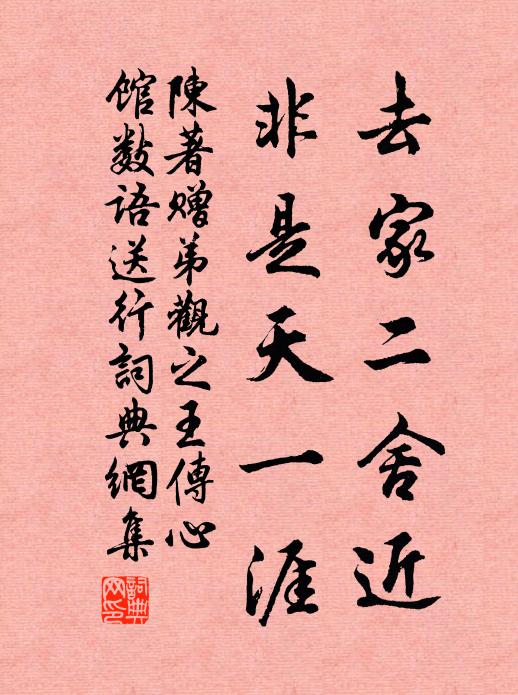 去家二舍近
非是天一涯
陳著赠弟觀之王傳心
馆数语送行詞典網集
詞典网印